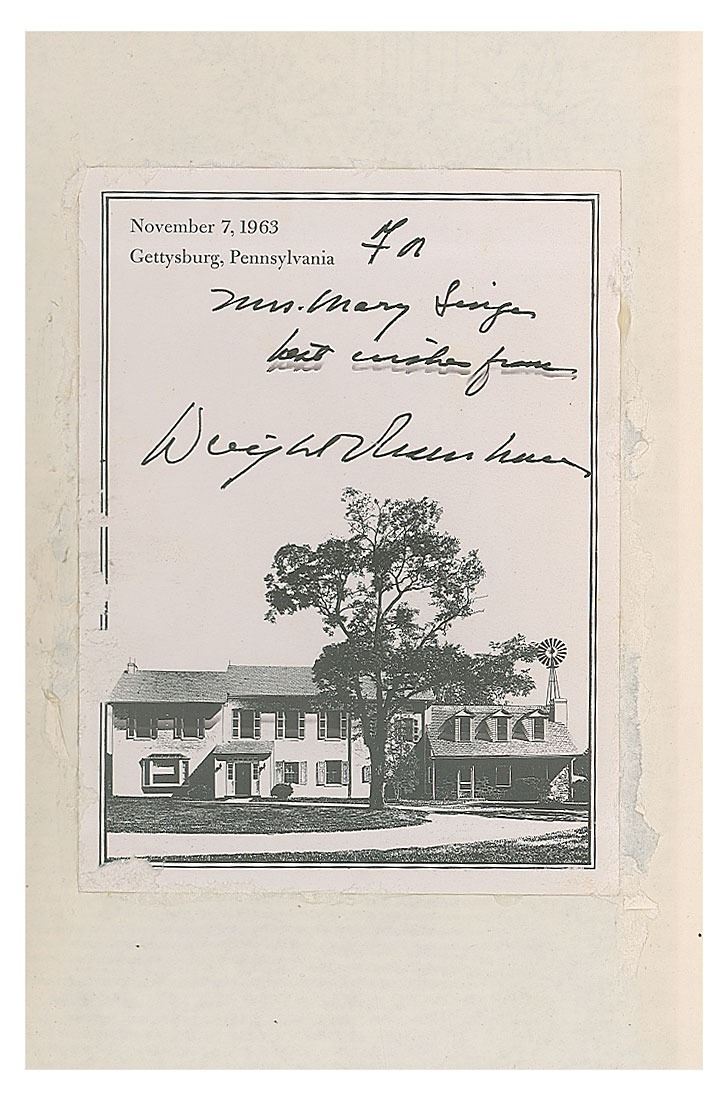 November 7, 1963
Gettysburg, Pennsylvania
For
Mrs. Mary Singer
best wishes from
Dwight Eisenhower